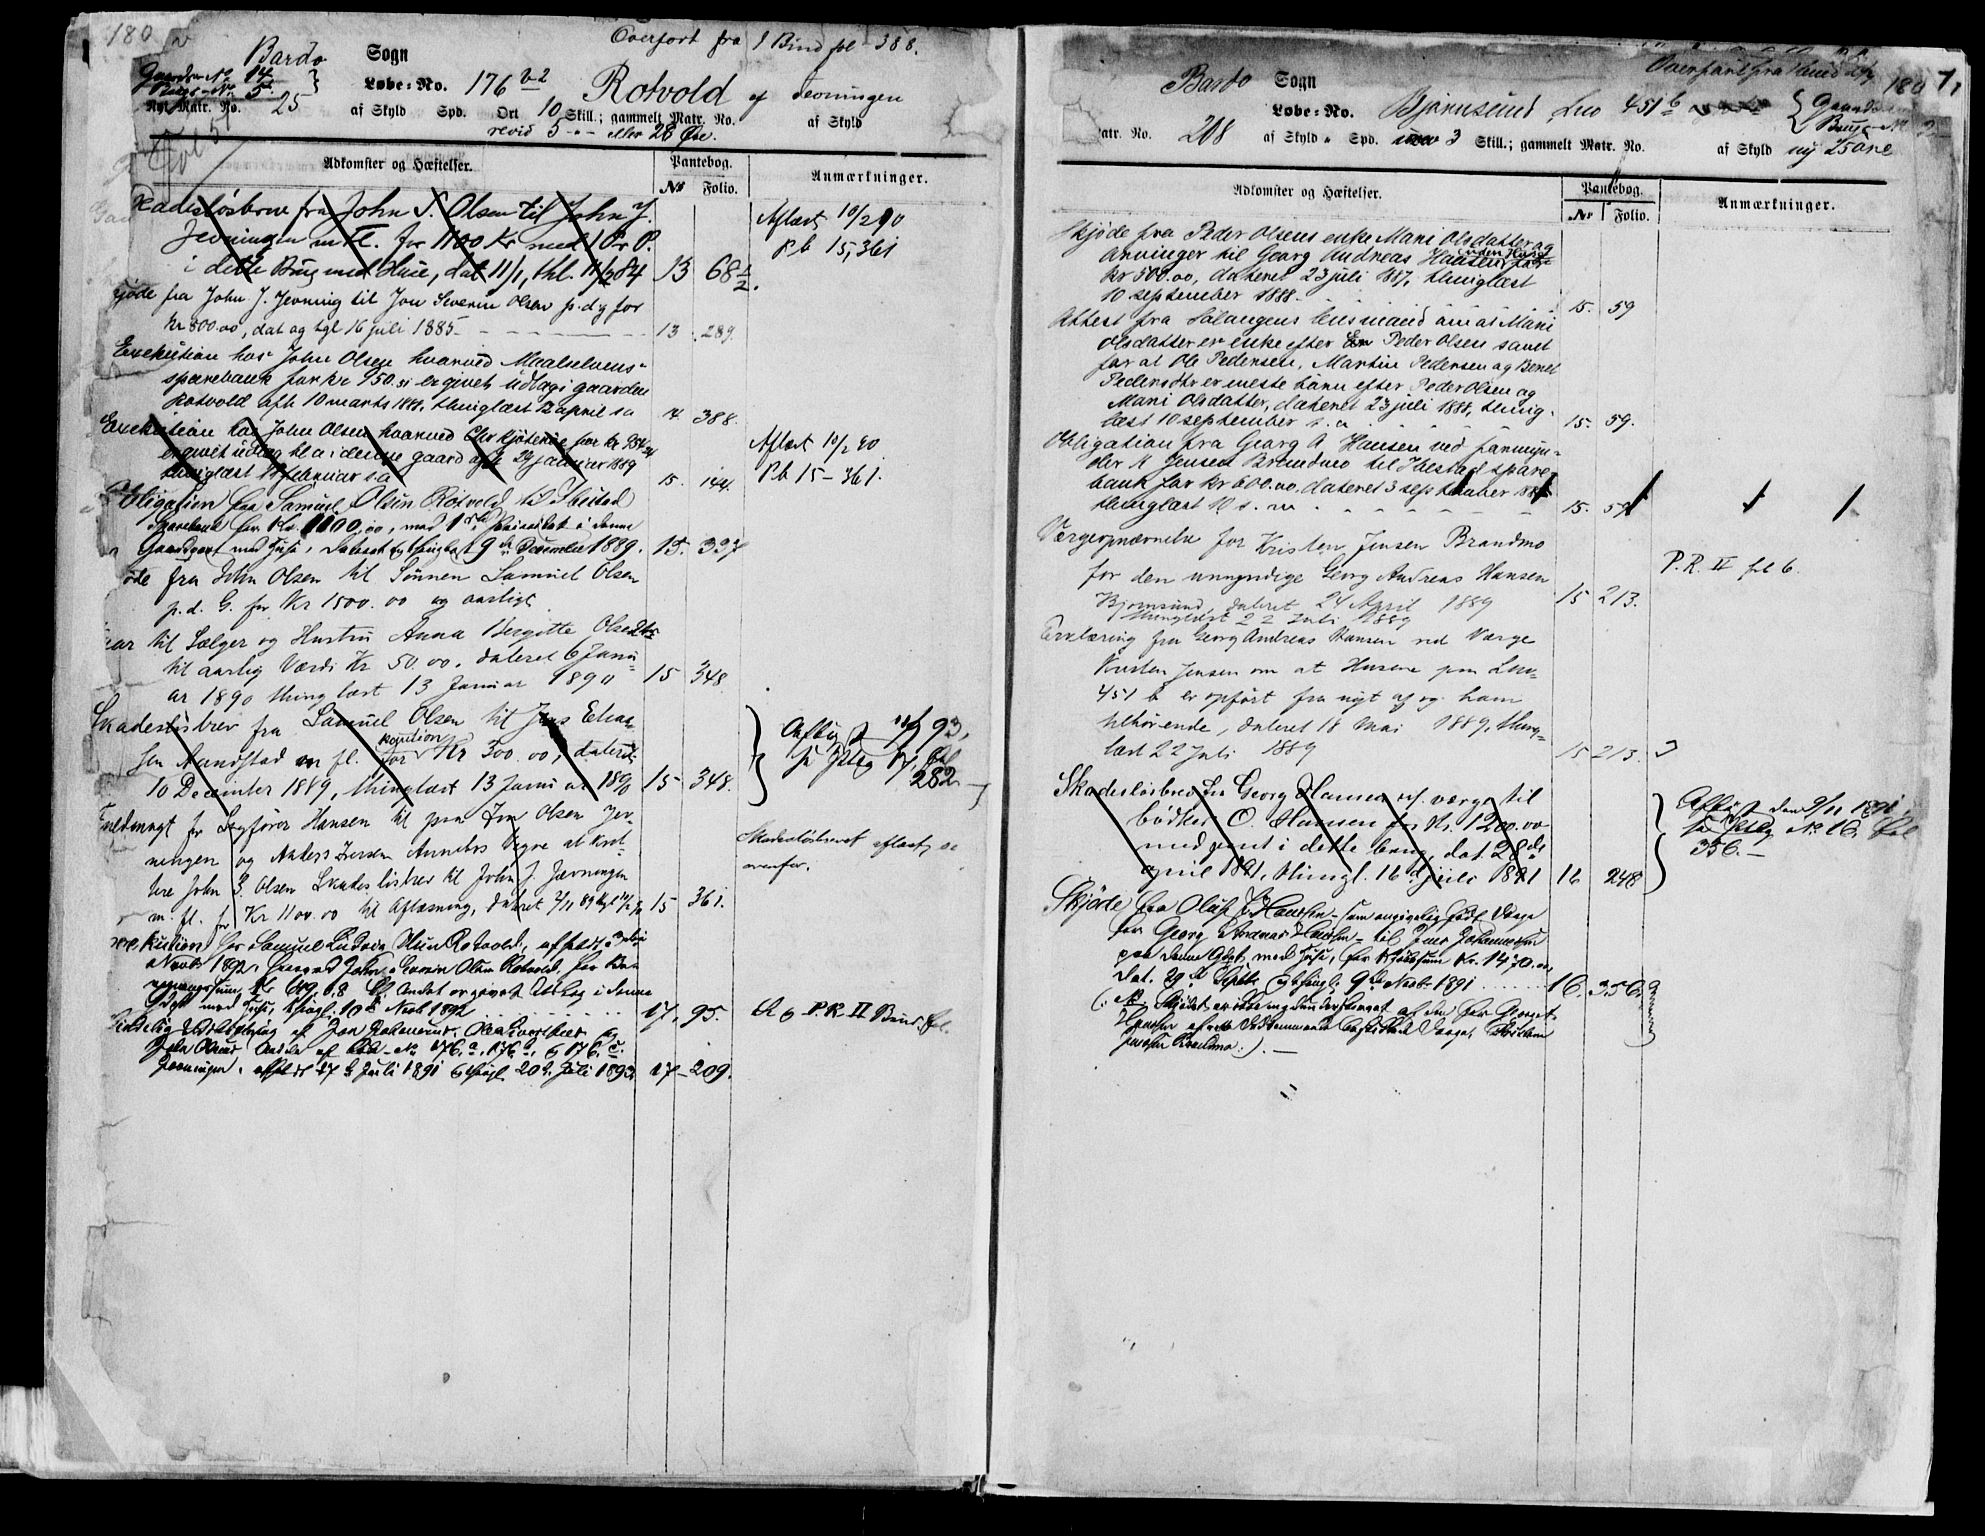 180
Overført fra I Bind fol 388.
Bardo Sogn
Gaards-No 14
Brugs-No. 5.
Løbe-No. 176 b-2 Rotvold af Jevningen
Ny Matr. No. 25 af Skyld Spd. Ort 10 Skill.; gammelt Matr. No. af Skyld
revid 5 - - eller 28 Øre.
Adkomster og Hæftelser. Pantebog. Anmærkninger.
No Folio.
Skadesløsbrev fra John S. Olsen til John J.
Jevningen m fl. for 1100 Kr med 1 Pr P.
i dette Brug med Huse, dat 11/1, thl. 11/2 84 13 68 1/2.
Aflæst 10/2 90
Pb 15, 361
Skjøde fra John J. Jevning til Jon Severin Olsen p. d g for
Kr 800.00, dat og tgl 16 juli 1885 13 289.
Exekution hos John Olsen hvorved Maalselvens
sparebank for kr 950. er givet udlæg i gaarden
Rotvold afh. 10 marts 1888, thinglæst 12 april s a 14 388.
Exekution hos John Olsen hvorved
er givet udlæg bl a i denne gaard afh 29 januar 1889
thinglæst 12 februar s. a 15. 144.
Aflæst 10/2 90
Pb 15 - 361.
Obligation fra Samuel Olsen Rotvold til Ibestad
Sparebank for Kr. 1100,00, med 1ste Prioritet i denne
Gaardpart med Huse, Dateret og thinglæst 9de December 1889. 15. 337
Skjøde fra John Olsen til Sønnen Samuel Olsen
p. d. G. for Kr 1500. 00 og aarligt
Kaar til Sælger og Hustru Anna Bergitte Olsedtr
til aarlig Værdi Kr 50.00. dateret 6 Janu-
ar 1890 thinglæst 13 Januar 1890 15 348
Skadesløsbrev fra Samuel Olsen til Jens Elias
sen Aundstad m fl. for kaution Kr 300.00, dateret
10 December 1889, thinglæst 13 Januar 1890 15 348.
282
Fuldmagt for Sagfører Hansen til paa Jon Olsen Jev
ningen og Anders Iversen Annelvs Vegne at kvit
tere John S. Olsen Skadesløsbrev til John J. Jævningen
m. fl. for Kr 1100.00 til Aflæsning, dateret 7/11 89 tgl 10/2 90 15 361.
Skadesløsbrevet aflæst, se
ovenfor.
Exekution hos Samuel Ludvig Olsen Rotvold, afholdt 3die
Novb 1892, hvorved John Severin Olsen Rotvold, for
Kr 619.08 Bl. Andet er givet Udlæg i denne
Gdpt med Huse, thingl. 10de Novb 1892 17. 95.
Cfr P.R. II Bind. fol.
John Olsens Andele af Løbe-No 176.a, 176.b, & 176.c.
Jevningen, afholdt 17de Juli 1891 & thingl. 20de Juli 1893. 17 - 209.
Overført fra I bind
180 7,
Bardo Sogn
Løbe-No. Bjørnsund Lno 451 b
Gaards
Brugs-No 2
Matr. No. 208 af Skyld " Spd. 3 Skill.; gammelt Matr. No. af Skyld ny 25 øre
Adkomster og Hæftelser. Pantebog. Anmærkninger.
No Folio.
Skjøde fra Peder Olsens enke Mari Olsdatter og
arvinger til Georg Andreas Hansen uden Huse for
kr 500.00, dateret 23 juli 1887, thinglæst
10 september 1888. 15. 59
Attest fra Salangens lensmand om at Mari
Olsdatter er enke efter Peder Olsen samt
for at Ole Pedersen, Martin Pedersen og Beret
Pedersdtr er eneste børn efter Peder Olsen og
Mari Olsdatter, dateret 23 juli 1888, thing-
læst 10 september s. a 15. 59.
Obligation fra Georg A Hansen ved formyn-
der K Jensen Brandmo til Ibestad spare-
bank for kr 600.00. dateret 3 september 1888
thinglæst 10 s. m 15. 59
Værgeopnævnelse for Kristen Jensen Brandmo
for den umyndige Georg Andreas Hansen
Bjørnsund, dateret 24 April 1889
thinglæst 22 Juli 1889 15 213.
P.R. II fol 6.
Erklæring fra Georg Andreas Hansen ved Værge
Kristen Jensen om at Husene paa Lno
451 b er opført fra nyt af og ham
tilhørende, dateret 18 Mai 1889, thing-
læst 22 Juli 1889 15 213.
Skadesløsbrev fra Georg Hansen m/. værge til
bødker O. Hansen for Kr. 1200.00
med pant i dette brug, dat. 28de
april 1891, thingl. 16 juli 1891 16 248
Aflyst den 9/11 1891,
se Pgtbg No 16, fol
356. -
Skjøde fra Oluf E. Hansen - som
for Georg Andreas Hansen - til Iver Johannessen
paa denne Gdpt med Huse, for Kjøbesum Kr. 1470.00,
Dat. 29de Septb. & thingl. 9de Novb. 1891 16. 356.
(: NB. Skjødet er
Jensen Brandmo :). -